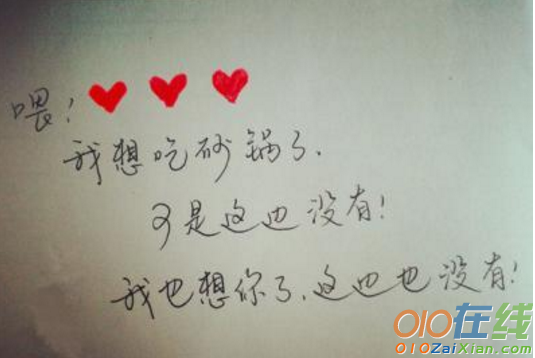 喂！
我想吃砂锅了.
可是这边没有！
我也想你了.这边也没有！
010在线
010ZaiXian.com